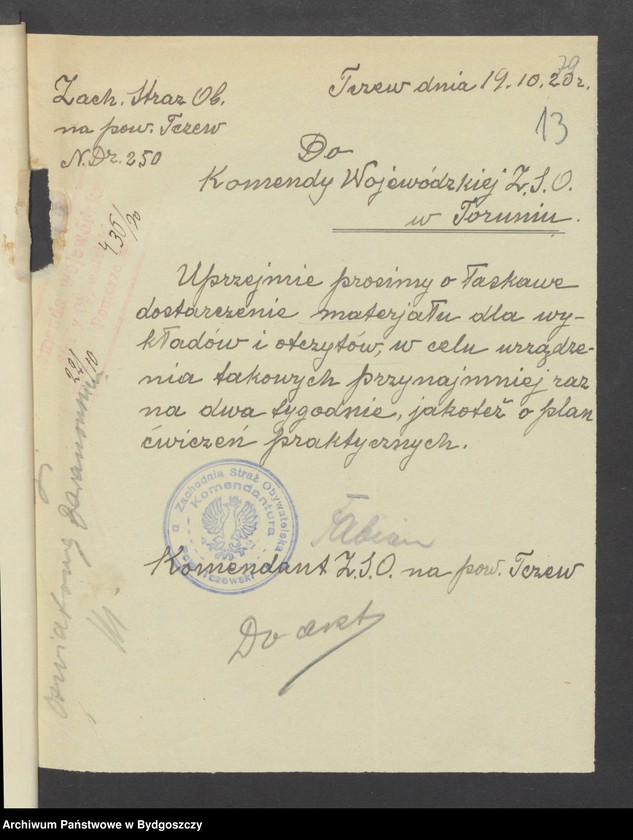 79
13
Zach. Straz Ob.
na pow. Tczew
N. Dz. 250
Tczew dnia 19.10.20r.
Do
Komendy Wojewódzkiej Z.S.O.
w Toruniu.
Uprzejmie prosimy o łaskawe
dostarczenie materjału dla wy-
kładów i otczytów, w celu urządze-
nia takowych przynajmniej raz
na dwa tygodnie, jakoteż o plan
ćwiczeń praktycznych.
Zachodnia Straż Obywatelska
Komendantura
Fabian
Komendant Z.S.O. na pow. Tczew
Do akt
435/20
22/10
Archiwum Państwowe w Bydgoszczy